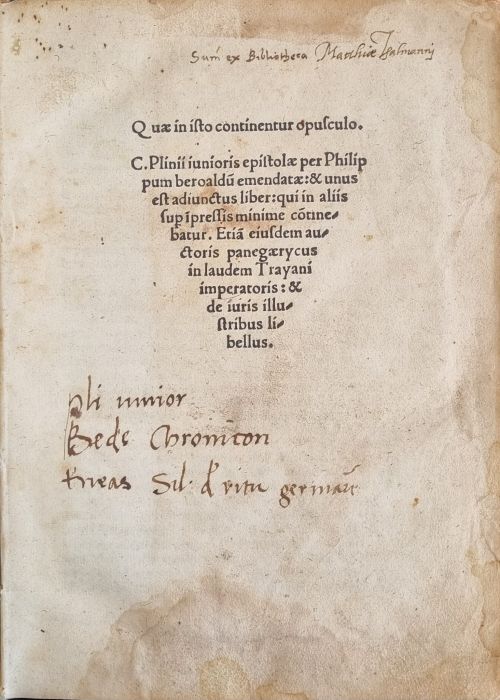 Sum ex Bibliotheca Matthiæ
Q uæ in isto continentur opusculo.
C. Plinii iunioris epistolæ per Philip
pum beroaldū emendatæ:& unus
est adiunctus liber:qui in aliis
sup īpressis minime cōtine⸗
batur. Etiā eiusdem au⸗
ctoris panegærycus
in laudem Trayani
imperatoris : &
de iuris illu⸗
stribus li⸗
bellus.
pli iunior
Bede Chronicon
Eneas Sil: d ritu germāe